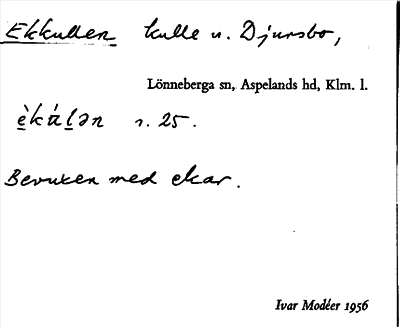 Ekkullen kulle n. Djursbo,
Lönneberga sn, Aspelands hd, Klm. l.
s. 25.
Bevuxen med ekar.
Ivar Modéer 1956